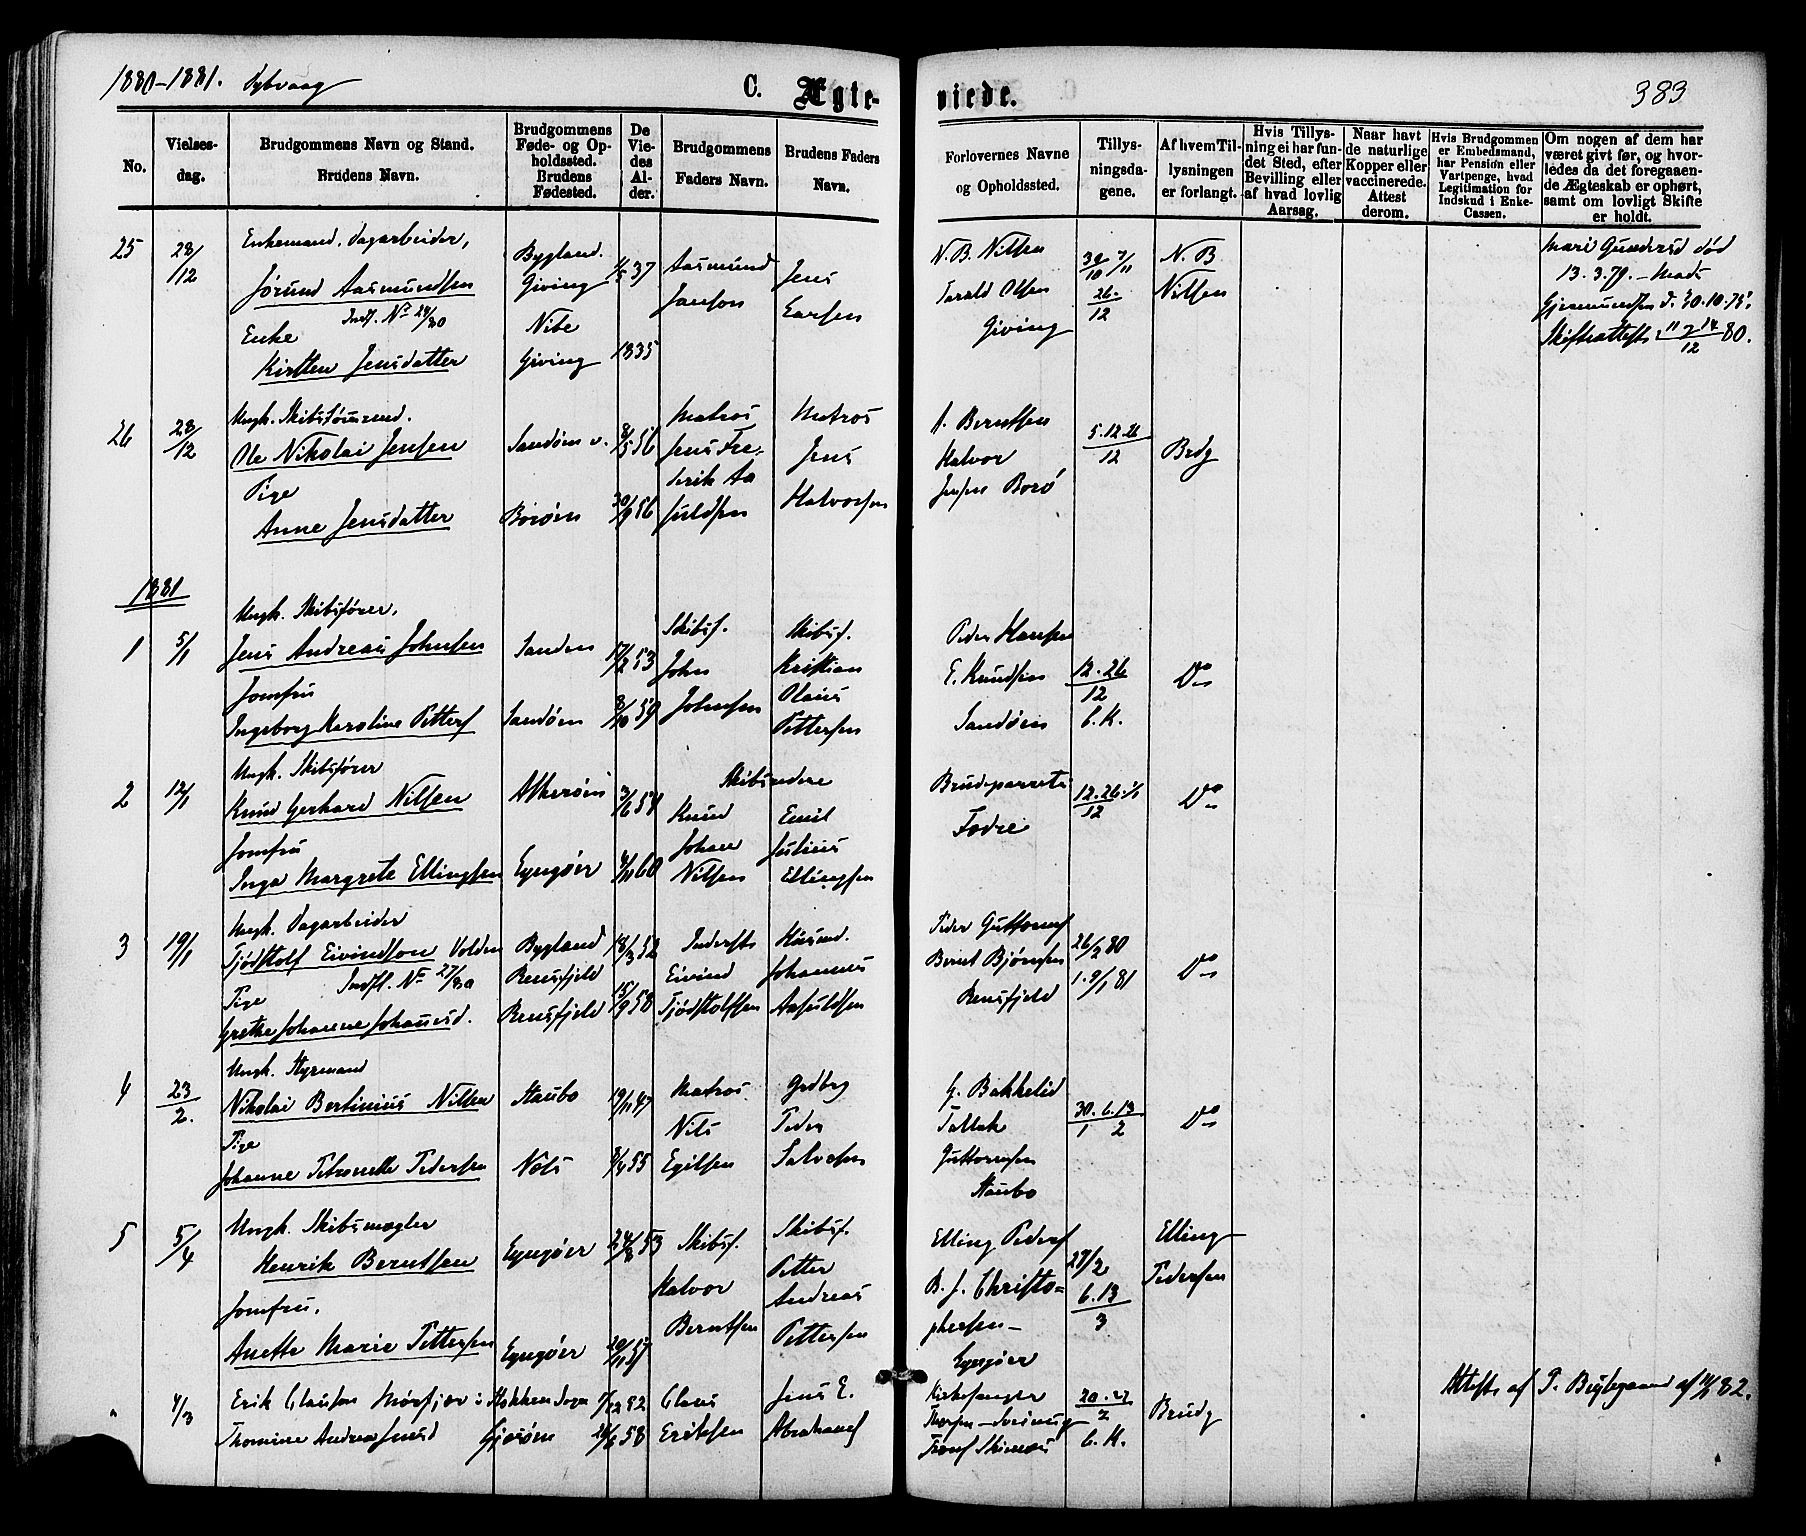 1880-1881. Dybvaag
C. Ægte-
viede.
383
No.
Vielses-
dag.
Brudgommens Navn og Stand.
Brudens Navn.
Brudgommens
Føde- og Op-
holdssted.
Brudens
Fødested.
De
Vie-
des
Al-
der.
Brudgommens
Faders Navn.
Brudens Faders
Navn.
Forlovernes Navne
og Opholdssted.
Tillys-
ningsda-
gene.
Af hvem Til-
lysningen
er forlangt.
Hvis Tillys-
ning ei har fun-
det Sted, efter
Bevilling eller
af hvad lovlig
Aarsag.
Naar havt
de naturlige
Kopper eller
vaccinerede.
Attest
derom.
Hvis Brudgommen
er Embedsmand,
har Pension eller
Vartpenge, hvad
Legitimation for
Indskud i Enke-
Cassen.
Om nogen af dem har
været givt før, og hvor-
ledes da det foregaaen-
de Ægteskab er ophørt,
samt om lovligt Skifte
er holdt.
25
28/12
Enkemand. Dagarbeider,
Jørund Aasmundsen
Indf. No 24/80
Enke
Kirsten Jensdatter
Bygland.
Giving
Nibe
Giving
37
1835
Aasmund
Janson
Jens
Larsen
N. B. Nilsen
Tarald Olsen
Giving
26.
12
N. B
Nilsen
Mari Gundersd død
13.3.79. – Mads
Gjermundsen d. 30.10.75.
Skifteattest 80.
26
28/12
Ungk. Skibstømmermd.
Ole Nikolai Jensen
Pige
Anne Jensdatter
Sandøen
Borøen
8/5 56
30/9 56
Matros
Jens Fre-
derik Aa
suldsen
Matros
Jens
Halvorsen
A. Berntsen
Halvor
Jensen Borø
5.12.26
12
Brdg
1881
1
5/1
Ungk. Skibsfører,
Jens Andreas Johnsen
Jomfru
Ingeborg Karoline Petters
Sanden
Sandøen
17/2 53
8/10 59
Skibsf.
John
Johnsen
Skibsf.
Kristian
Olaus
Pettersen
Peder Hansen
E. Knudsen
Sandøen
12.26
12
6.K.
Do
2
12/1
Ungk. Skibsfører
Knud Gerhard Nilsen
Jomfru
Inga Margrete Ellingsen
Askerøen
Lyngøer
3/6 54
4/11 60
Skibsredere
Knud
Johan
Nilsen
Emil
Julius
Ellingsen
Brudeparrets
Fædre
12.26.1/1
12
Do
3
19/1
Ungk. Dagarbeider
Tjøstolf Eivindson Volden
Indfl. No 27/80
Pige
Grethe Johanne Johannesd.
Bygland
Rensfjeld
Rensfjeld
18/3 52
15/9 58
Inderst
Eivind
Tjøstolfsen
Husmd.
Johannes
Aasuldsen
Peder Guttorms
Bernt Bjørnsen
Rensfjeld
26/2 80
1.9/1 81
Do
4
23/2.
Ungk. Styrmand
Nikolai Bertinius Nilsen
Pige
Johanne Petronelle Pedersen
Staubo
Næs
19/11 47
5/4 55
Matros
Nils
Egilsen
Grdbg
Peder
Salvesen
G. Bakkelid
Tallak
Guttormsen
Staubo
30.6.13
1 2
Do
5
5/4
Ungk. Skibsmægler
Henrik Berntsen
Jomfru,
Anette Marie Pettersen
Lyngøer
Lyngøer
24/8 53
20/11 57
Skibsf.
Halvor
Berntsen
Skibsf.
Petter
Andreas
Pettersen
Elling Peders
B. J. Christo-
phersen –
Lyngøer
27/2
6.13
3
Elling
Pedersen
4/3
Erik Clausen Mørfjær i Holt
Thomine Andrea Jensd
Hakkens Sogn
Gjerøen
52
58
Claus
Eriksen
Jens E.
Abrahams
Kirkesanger
20.27
2
6.K.
Brudg
Attest af P. Bugtegaard af 82.